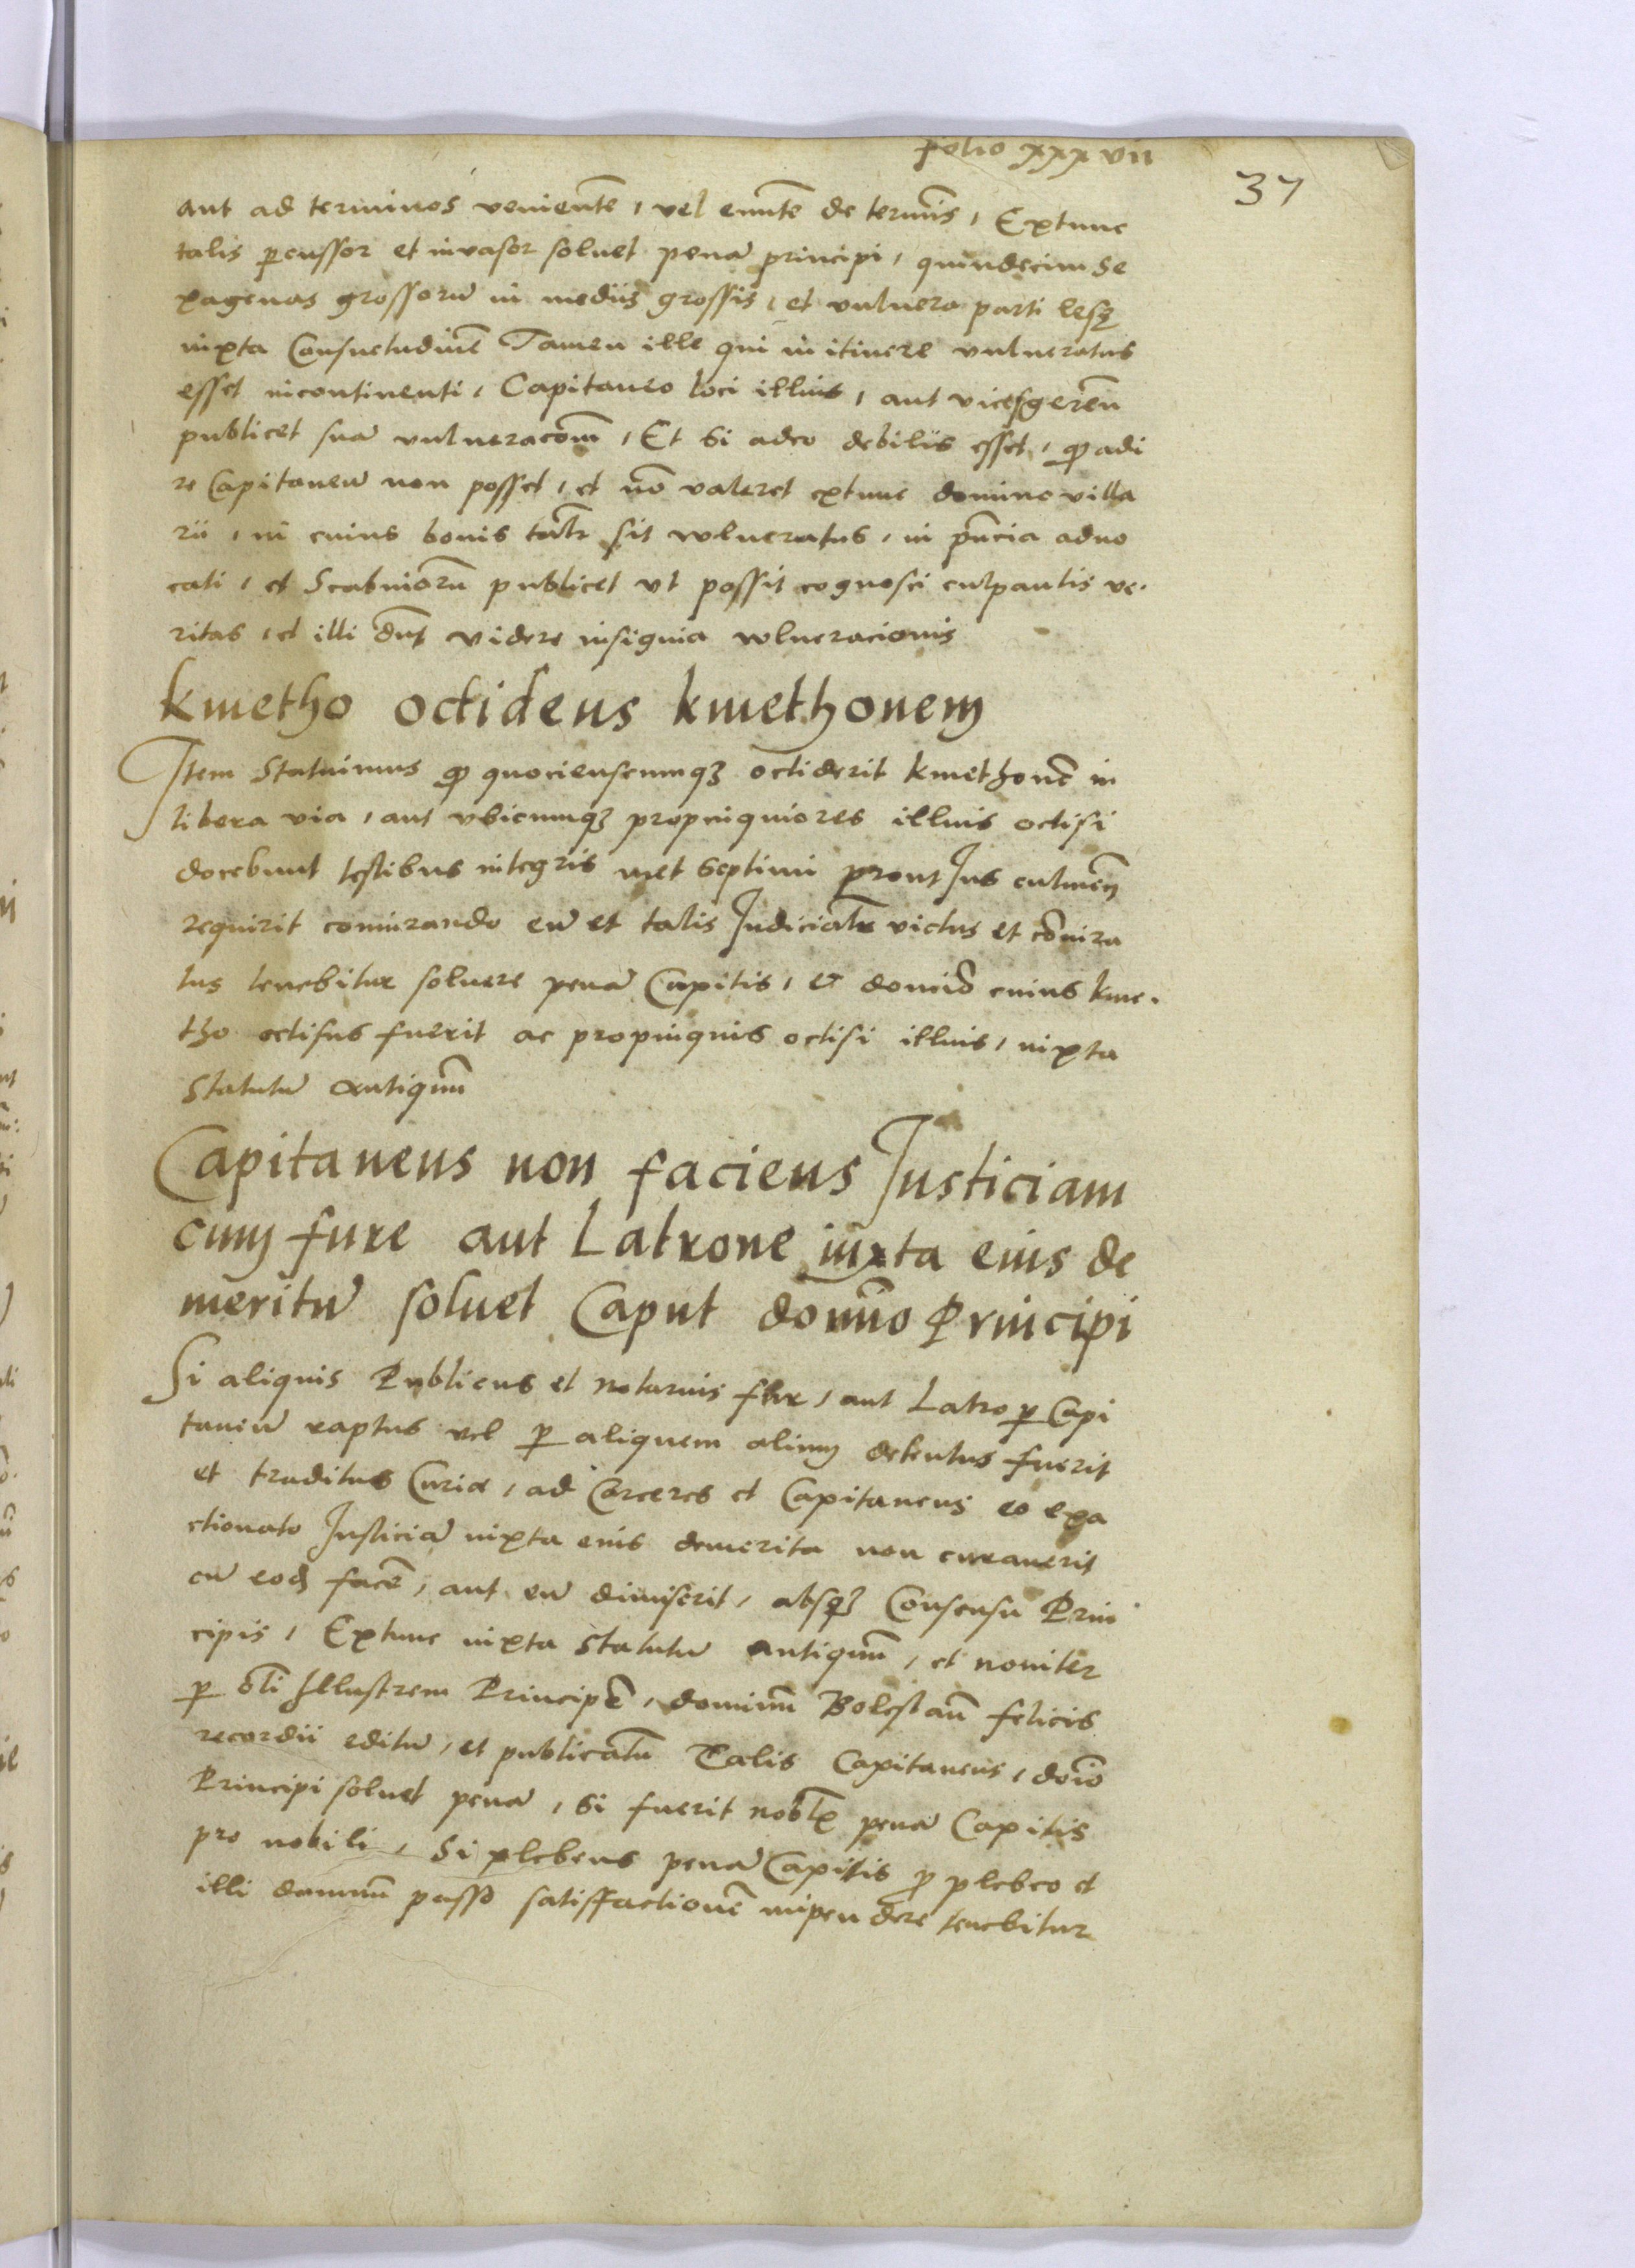 folio xxxvii
37
aut ad terminos venientē, vel euntē de termīs, Extunc
talis ꝑcussor et invasor soluet penā principi, quindecim se
xagenas grossorū in mediis grossis, et vulnera parti lesę
iuxta Consuetudinē Tamen ille qui in itinere vulneratus
esset incontinenti, Capitaneo loci illius, aut vicesgerēn
publicet suā vulneracōm̄, Et si adeo debilis esset, ꝙ adi
re Capitaneū non posset, et nō valeret extunc domino villa
rū, in cuius bonis talr̄ sit wlneratus, in pn̄cia aduo
cati, et Scabniorū publicet ut possit cognosci culpantis ve.
ritas, et illi dn̄t videre insignia wlneracionis
kmetho occidens kmethonem
Item Statuimus ꝙ quocienscumqꝫ occiderit kmethonē in
libera via, aut vbicumqꝫ propinquiores illius occisi
docebunt testibus integris met septimi prout Ius culmēn
requirit conuirando eū et talis Iudicialr̄ victus et cōuira
tus tenebitur soluere penā Capitis, & domīo cuius kme.
tho occisus fuerit ac propinquis occisi illius, iuxta
Statutū antiquū
Capitaneus non faciens Iusticiam
cum fure aut Latrone iuxta eius de
meritū soluet Caput domīo Principi
Si aliquis Publicus et notarius fur, aut Latro ꝑ Capi
taneū raptus vel ꝑ aliquem alium detentus fuerit
et traditus Curiæ, ad Carceres et Capitaneus eo exa
ctionato Iusticiā iuxta eius demerita non curauerit
cū eodꝫ facē, aut eū dimiserit, absqꝫ Consensu Prin
cipis, Extunc iuxta Statutū antiquū, et nouiter
ꝑ oli Illustrem Principē, dominū Boleslaū felicis
recordii editū, et publicatū Talis Capitaneus, doīo
Principi soluet penā, si fuerit nobl̄ penā Capitis
pro nobili, Si plebeus penā Capitis ꝓ plebeo et
illi damnū passo satisffactionē impendere tenebitur